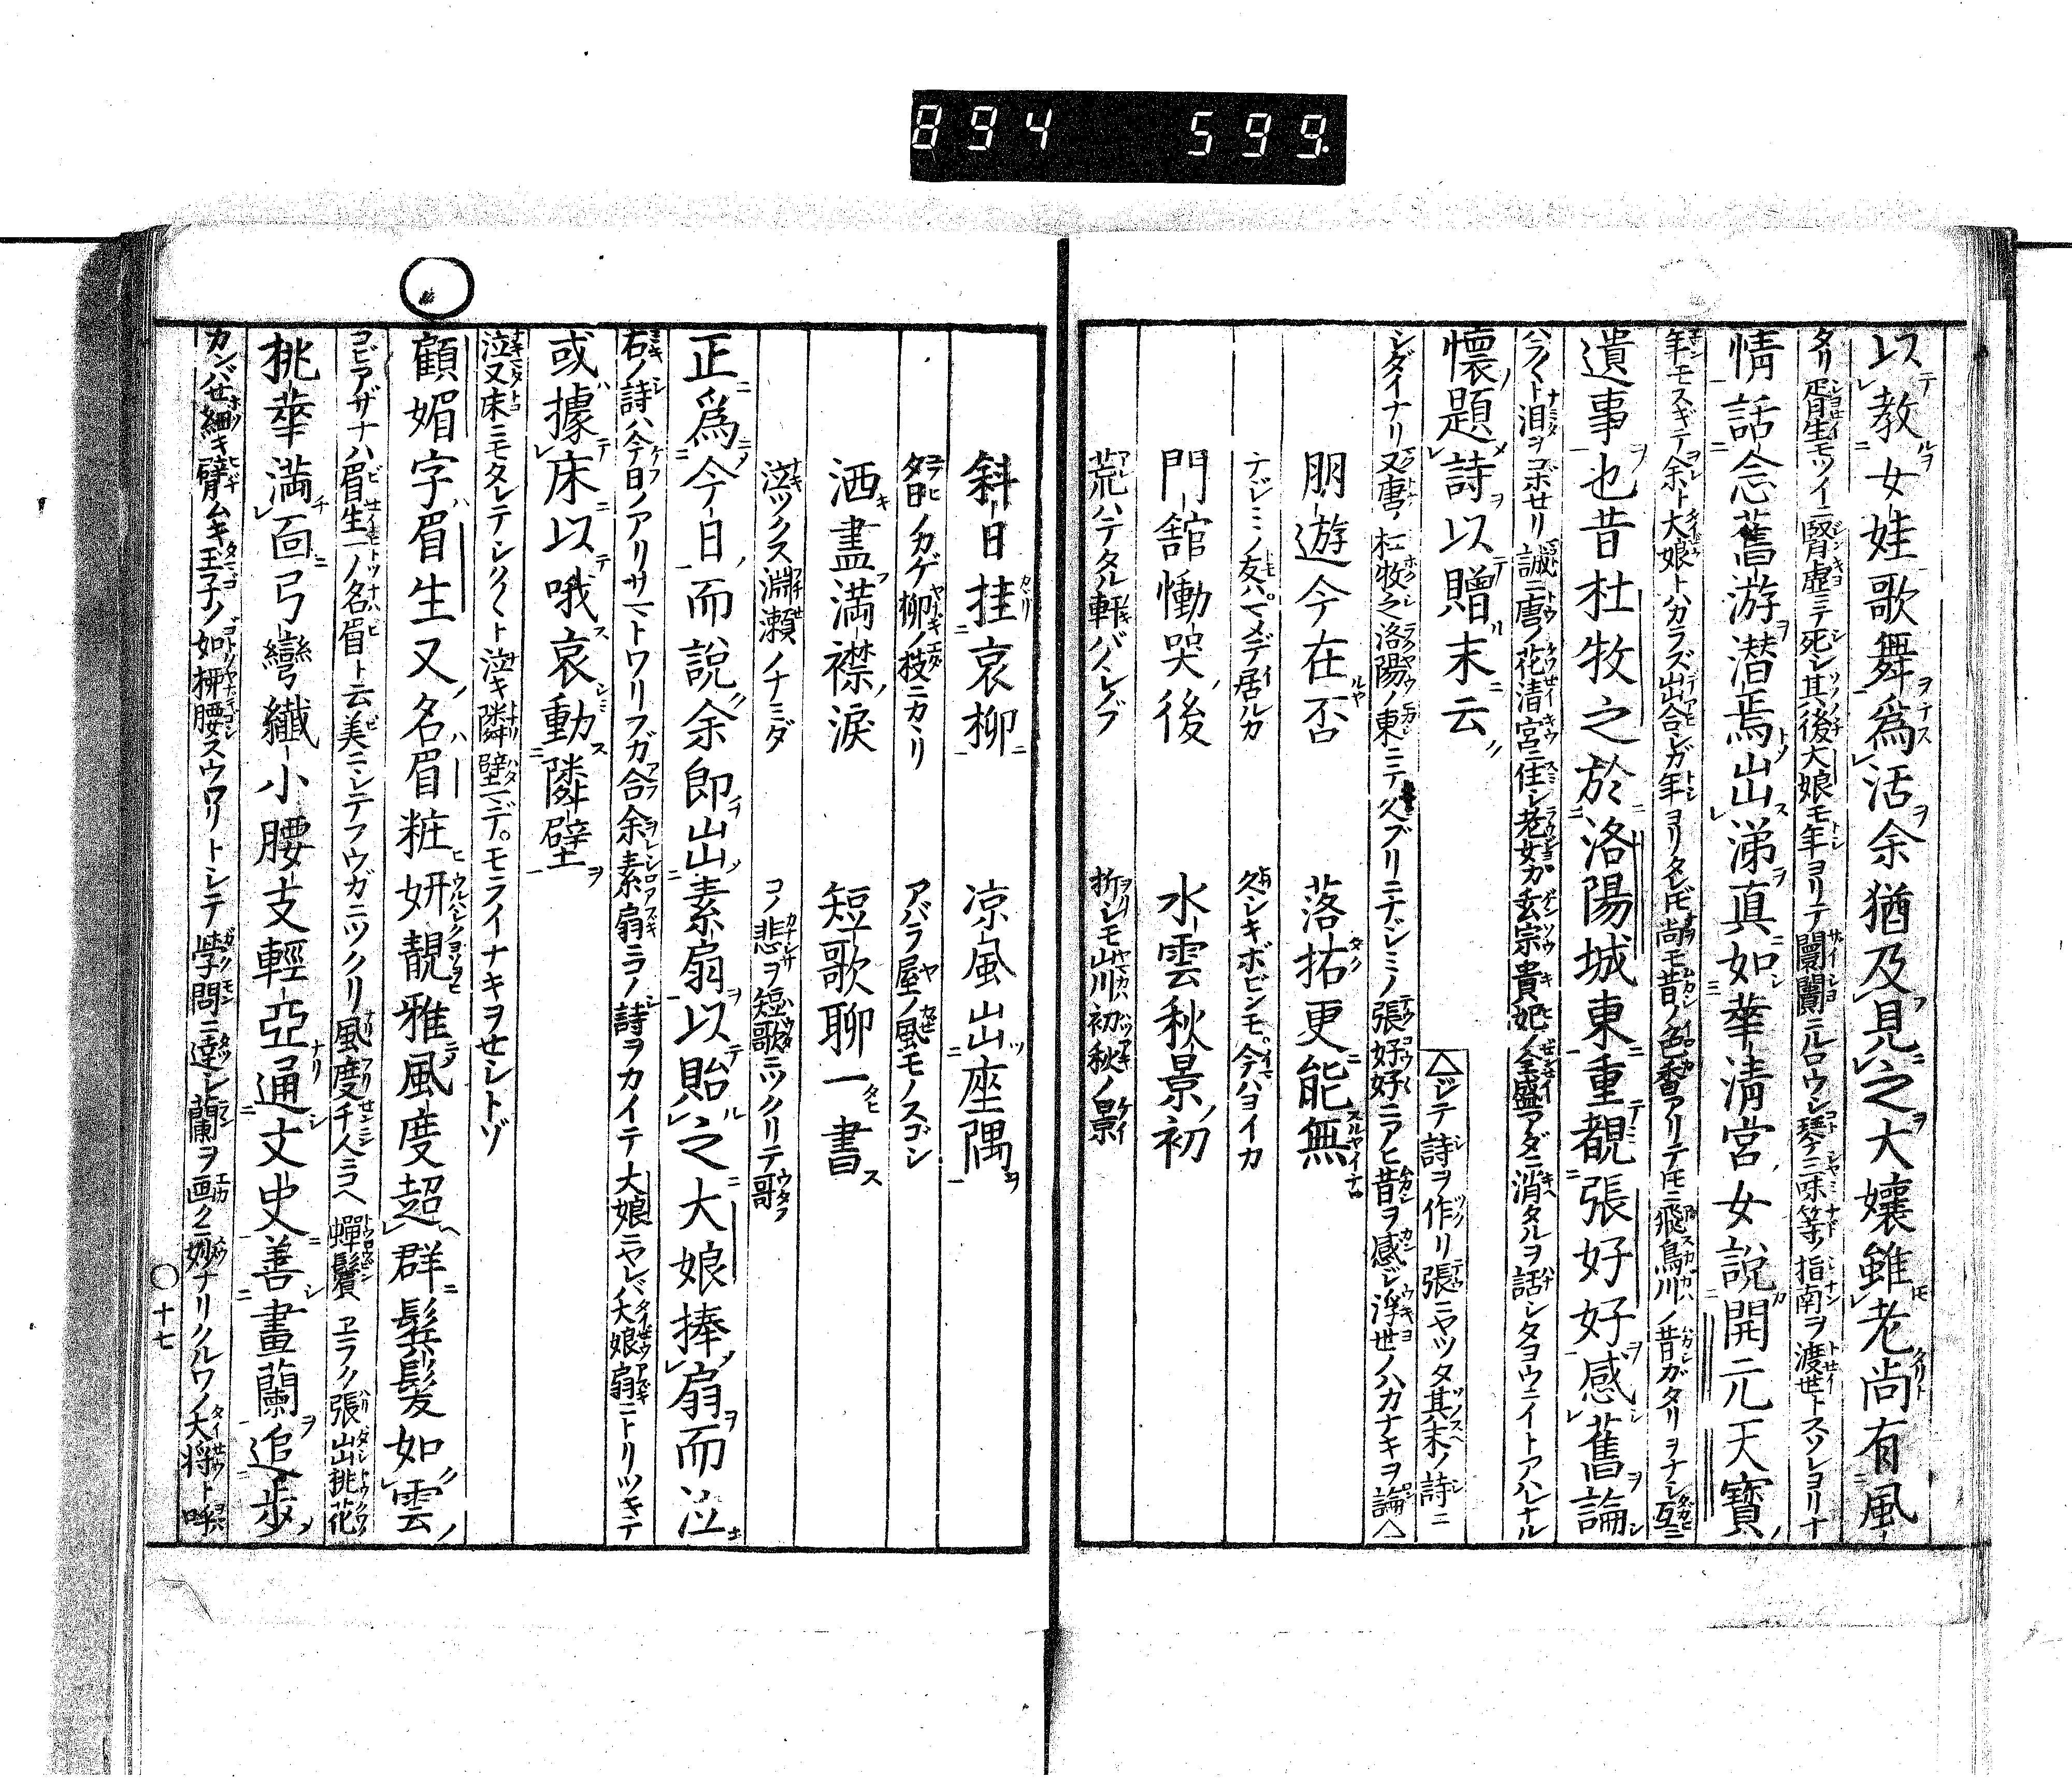 894 599.
以教女娃歌舞爲活余猶及見之大孃雖老尚有風
タリ胥生モツイニ腎虚ニテ死シ其後大娘モ年ヨリテ闤闠ニルロウシ琴三味等ノ指南ヲ渡世トスソレヨリナ
情話念舊游潜焉出涕真如華淸宮女說開元天寳
年モスギテ余ト大娘トハカラズ出合シガ年ヨリタレ𪜈尚モ昔ノ色香アリテ𪜈ニ飛鳥川ノ昔ガタリヲナシ互ニ
遺事也昔杜牧之於洛陽城東重覩張好好感舊論
ハラ〱ト泪ヲコボセリ誠ニ唐ノ花清宮ニ住シ老女カ玄宗貴妃ノ全盛アダニ消タルヲ話シタヨウニイトアハレナル
懷題詩以贈末云
△ジテ詩ヲ作リ張ニヤツタ其末ノ詩ニ
シダイナリ又唐ノ杜牧之洛陽ノ東ニテ久ブリニナジミノ張好好ニアヒ昔ヲ感ジ浮世ノハカナキヲ論△
朋遊今在否 落拓更能無
ナジミノ友ハマメデ居ルカ 久シキボビンモ今ハヨイカ
門舘慟哭後 水雲秋景初
荒ハテタル軒バノシノブ 折シモ山川初秋ノ景
斜日挂衰柳 凉風出座隅
夕日ノカゲ柳ノ枝ニカヽリ アバラ屋ノ風モノスゴシ
洒盡満襟淚 短歌聊一書
泣ツクス淵瀬ノナミダ コノ悲ヲ短歌ニツクリテ哥
正爲今日而說余即出素扇以貽之大娘捧扇而泣
右ノ詩ハ今日ノアリサマトワリフガ合余素扇ニコノ詩ヲカイテ大娘ニヤレバ大娘扇ニトリツキテ
或據床以哦哀動隣壁
泣又床ニモタレテシク〱ト泣キ隣壁マデモライナキヲセシトゾ
顧媚字眉生又名眉粧妍靚雅風度超群鬂髪如雲
コビアザナハ眉生一ノ名眉ト云美ニシテフウガニツクリ風度千人ニコヘ蟬鬢ヱラク張出桃花
桃華満面弓彎纖小腰支輕亞通文史善畫蘭追歩
カンバセ細キ臂ムキ玉子ノ如柳腰スウワリトシテ学問ニ達シ蘭ヲ画クニ妙ナリクルワノ大将ト呼
〇十七